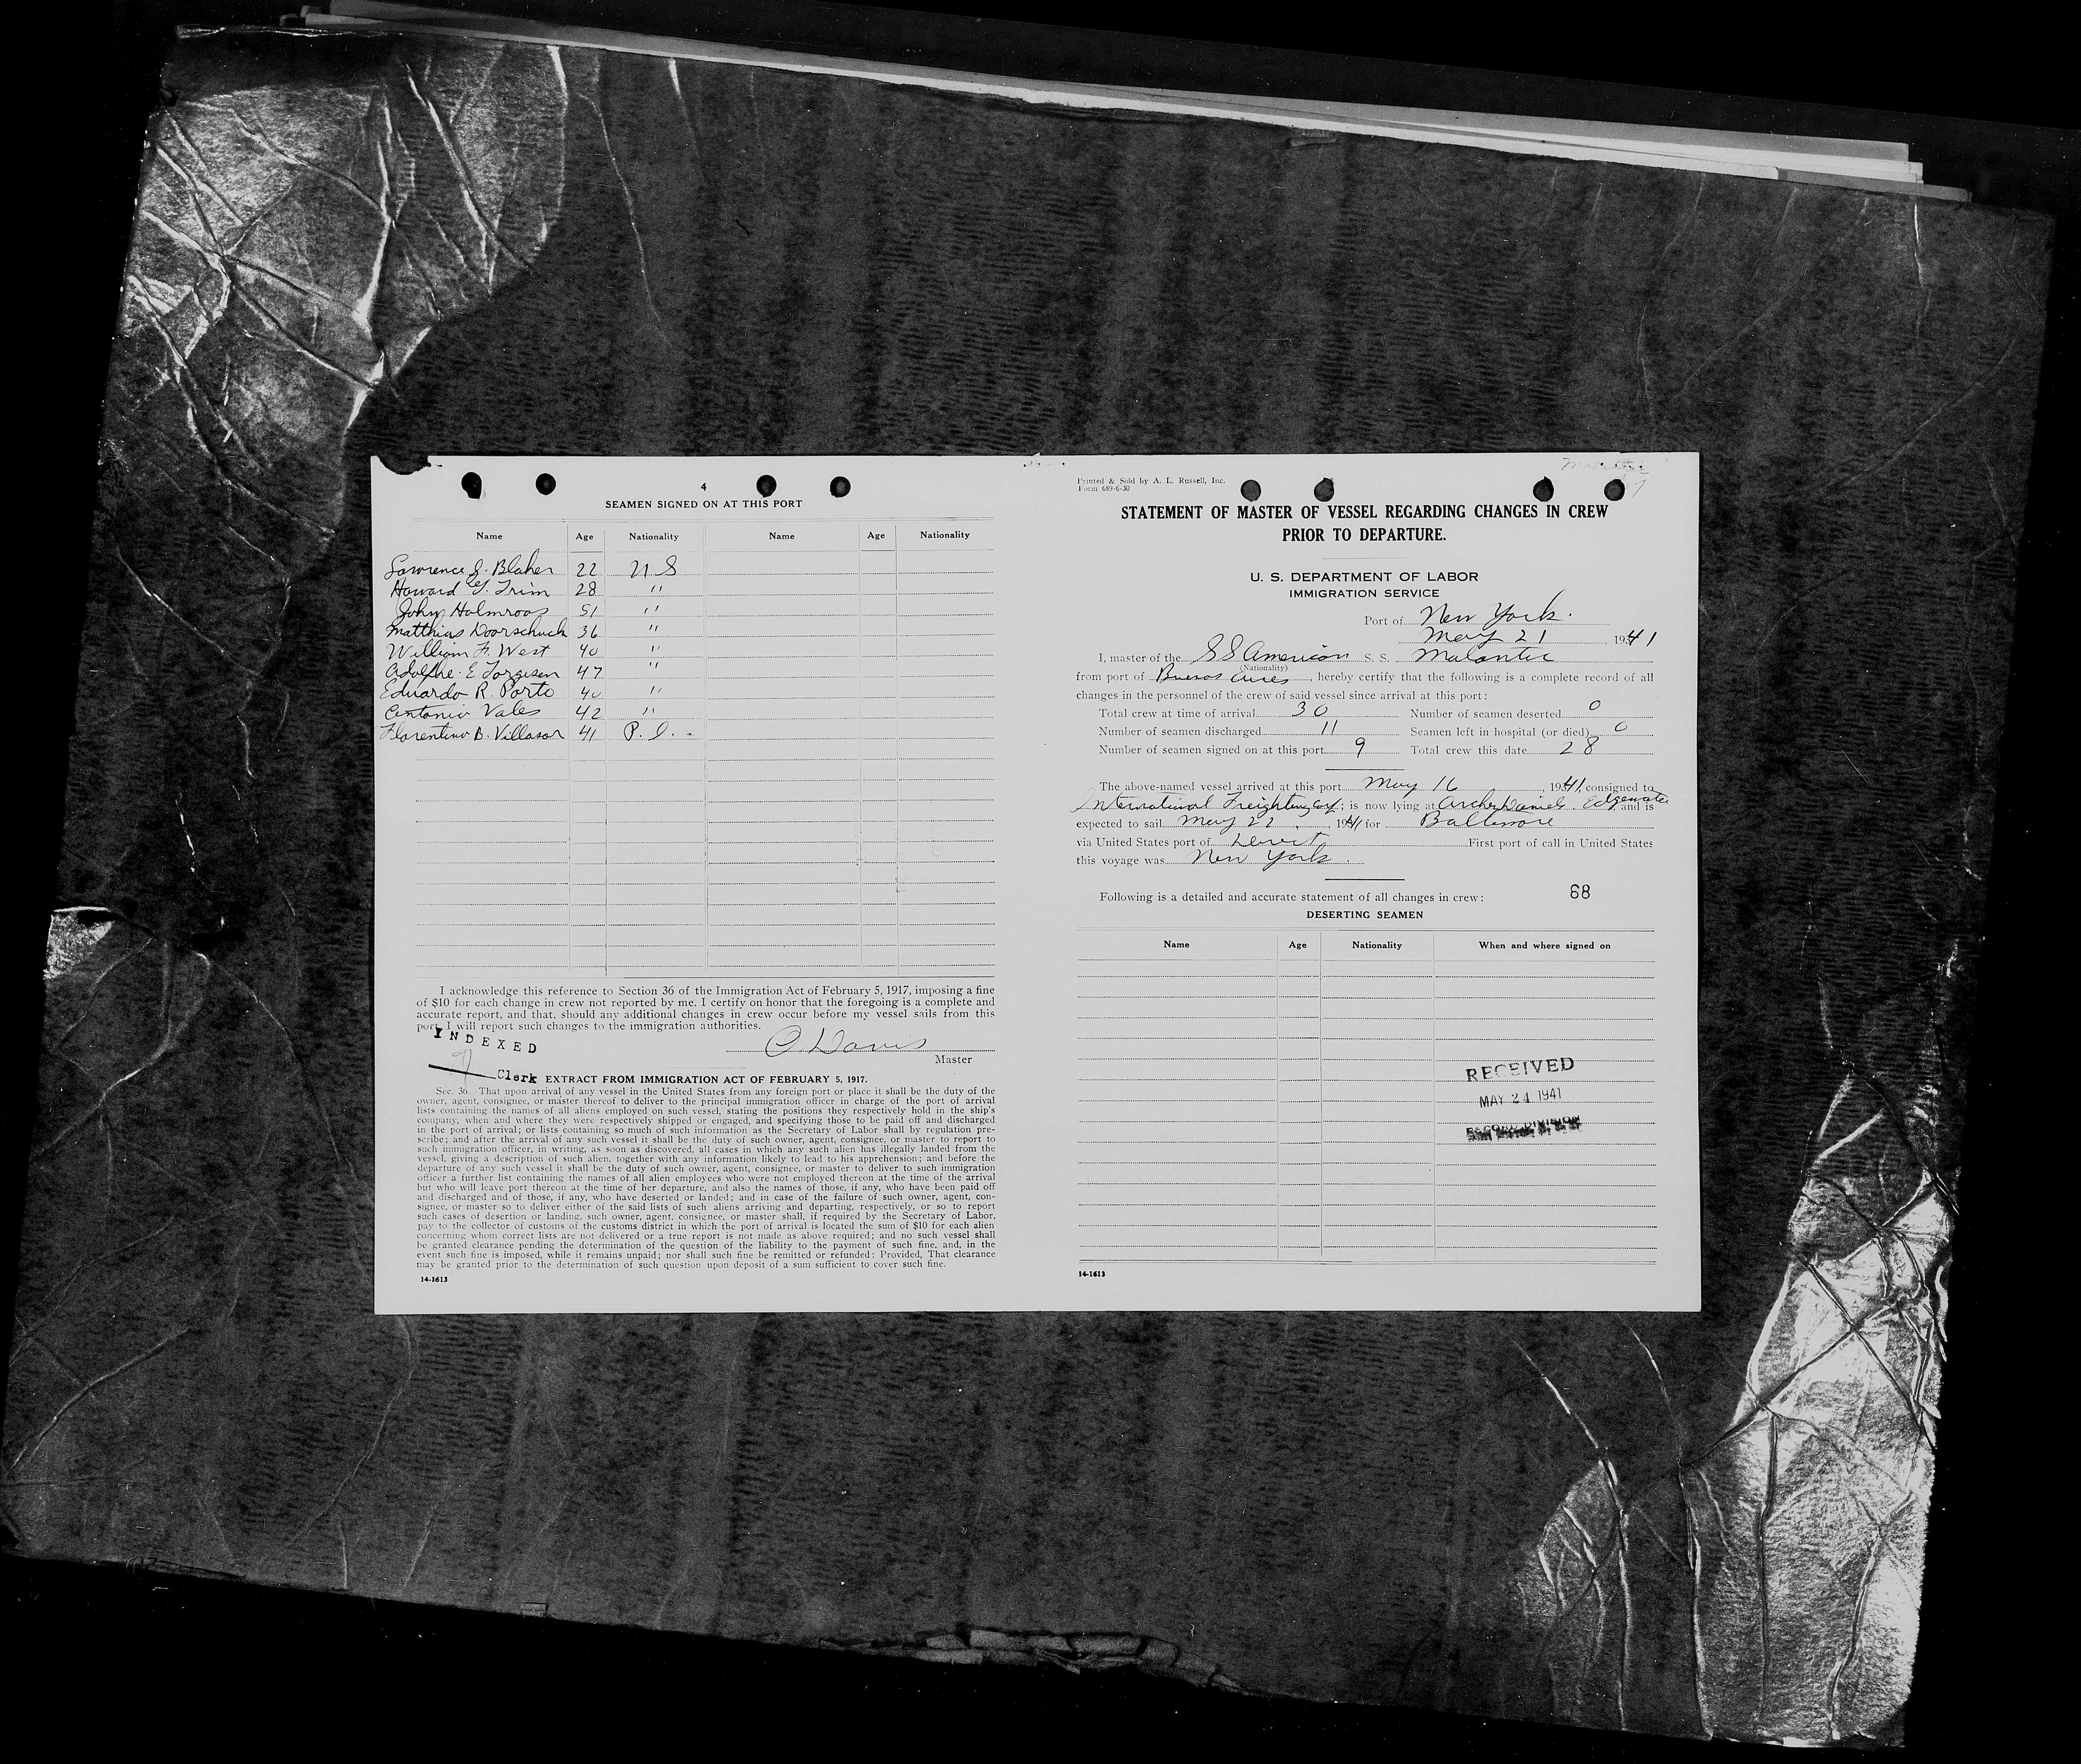 4
SEAMEN SIGNED ON AT THIS PORT
Name Age Nationality Name Age Nationality
Lawrence J. Blaher 22 U S
Howard Trim 28 "
John Holmroos 51 "
Matthias Doorschuck 36 "
William F. West 40 "
Adolphe E Torgisen 47 "
Eduardo R. Porto 40 "
Antonio Vales 42 "
Florentino B. Villasor 41 P. I. -
I acknowledge this reference to Section 36 of the Immigration Act of February 5, 1917, imposing a fine
of $10 for each change in crew not reported by me. I certify on honor that the foregoing is a complete and
accurate report, and that, should any additional changes in crew occur before my vessel sails from this
port, I will report such changes to the immigration authorities.
INDEXED
C Davis
Master
Clerk
EXTRACT FROM IMMIGRATION ACT OF FEBRUARY 5, 1917.
Sec. 36. That upon arrival of any vessel in the United States from any foreign port or place it shall be the duty of the
owner, agent, consignee, or master thereof to deliver to the principal immigration officer in charge of the port of arrival
lists containing the names of all aliens employed on such vessel, stating the positions they respectively hold in the ship's
company, when and where they were respectively shipped or engaged, and specifying those to be paid off and discharged
in the port of arrival; or lists containing so much of such information as the Secretary of Labor shall by regulation pre-
scribe; and after the arrival of any such vessel it shall be the duty of such owner, agent, consignee, or master to report to
such immigration officer, in writing, as soon as discovered, all cases in which any such alien has illegally landed from the
vessel, giving a description of such alien, together with any information likely to lead to his apprehension; and before the
departure of any such vessel it shall be the duty of such owner, agent, consignee, or master to deliver to such immigration
officer a further list containing the names of all alien employees who were not employed thereon at the time of the arrival
but who will leave port thereon at the time of her departure, and also the names of those, if any, who have been paid off
and discharged and of those, if any, who have deserted or landed; and in case of the failure of such owner, agent, con-
signee, or master so to deliver either of the said lists of such aliens arriving and departing, respectively, or so to report
such cases of desertion or landing, such owner, agent, consignee, or master shall, if required by the Secretary of Labor,
pay to the collector of customs of the customs district in which the port of arrival is located the sum of $10 for each alien
concerning whom correct lists are not delivered or a true report is not made as above required; and no such vessel shall
be granted clearance pending the determination of the question of the liability to the payment of such fine, and, in the
event such fine is imposed, while it remains unpaid; nor shall such fine be remitted or refunded: Provided, That clearance
may be granted prior to the determination of such question upon deposit of a sum sufficient to cover such fine.
14-1613
Printed & Sold by A. L. Russell, Inc.
Form 689-6-30
STATEMENT OF MASTER OF VESSEL REGARDING CHANGES IN CREW
PRIOR TO DEPARTURE.
U. S. DEPARTMENT OF LABOR
IMMIGRATION SERVICE
Port of New York.
May 21 1941
I, master of the SS American S. S. Malantic
(Nationality)
from port of Buenos Aires, hereby certify that the following is a complete record of all
changes in the personnel of the crew of said vessel since arrival at this port:
Total crew at time of arrival 30 Number of seamen deserted 0
Number of seamen discharged 11 Seamen left in hospital (or died) 0
Number of seamen signed on at this port 9 Total crew this date 28
The above-named vessel arrived at this port May 16, 1941, consigned to
International Freighting Corp; is now lying at Archer Daniels. Edgewater and is
expected to sail May 22, 1941 for Baltimore
via United States port of Direct First port of call in United States
this voyage was New York.
Following is a detailed and accurate statement of all changes in crew: 68
DESERTING SEAMEN
Name Age Nationality When and where signed on
RECEIVED
MAY 24 1941
RECORD DIVISION
14-1613